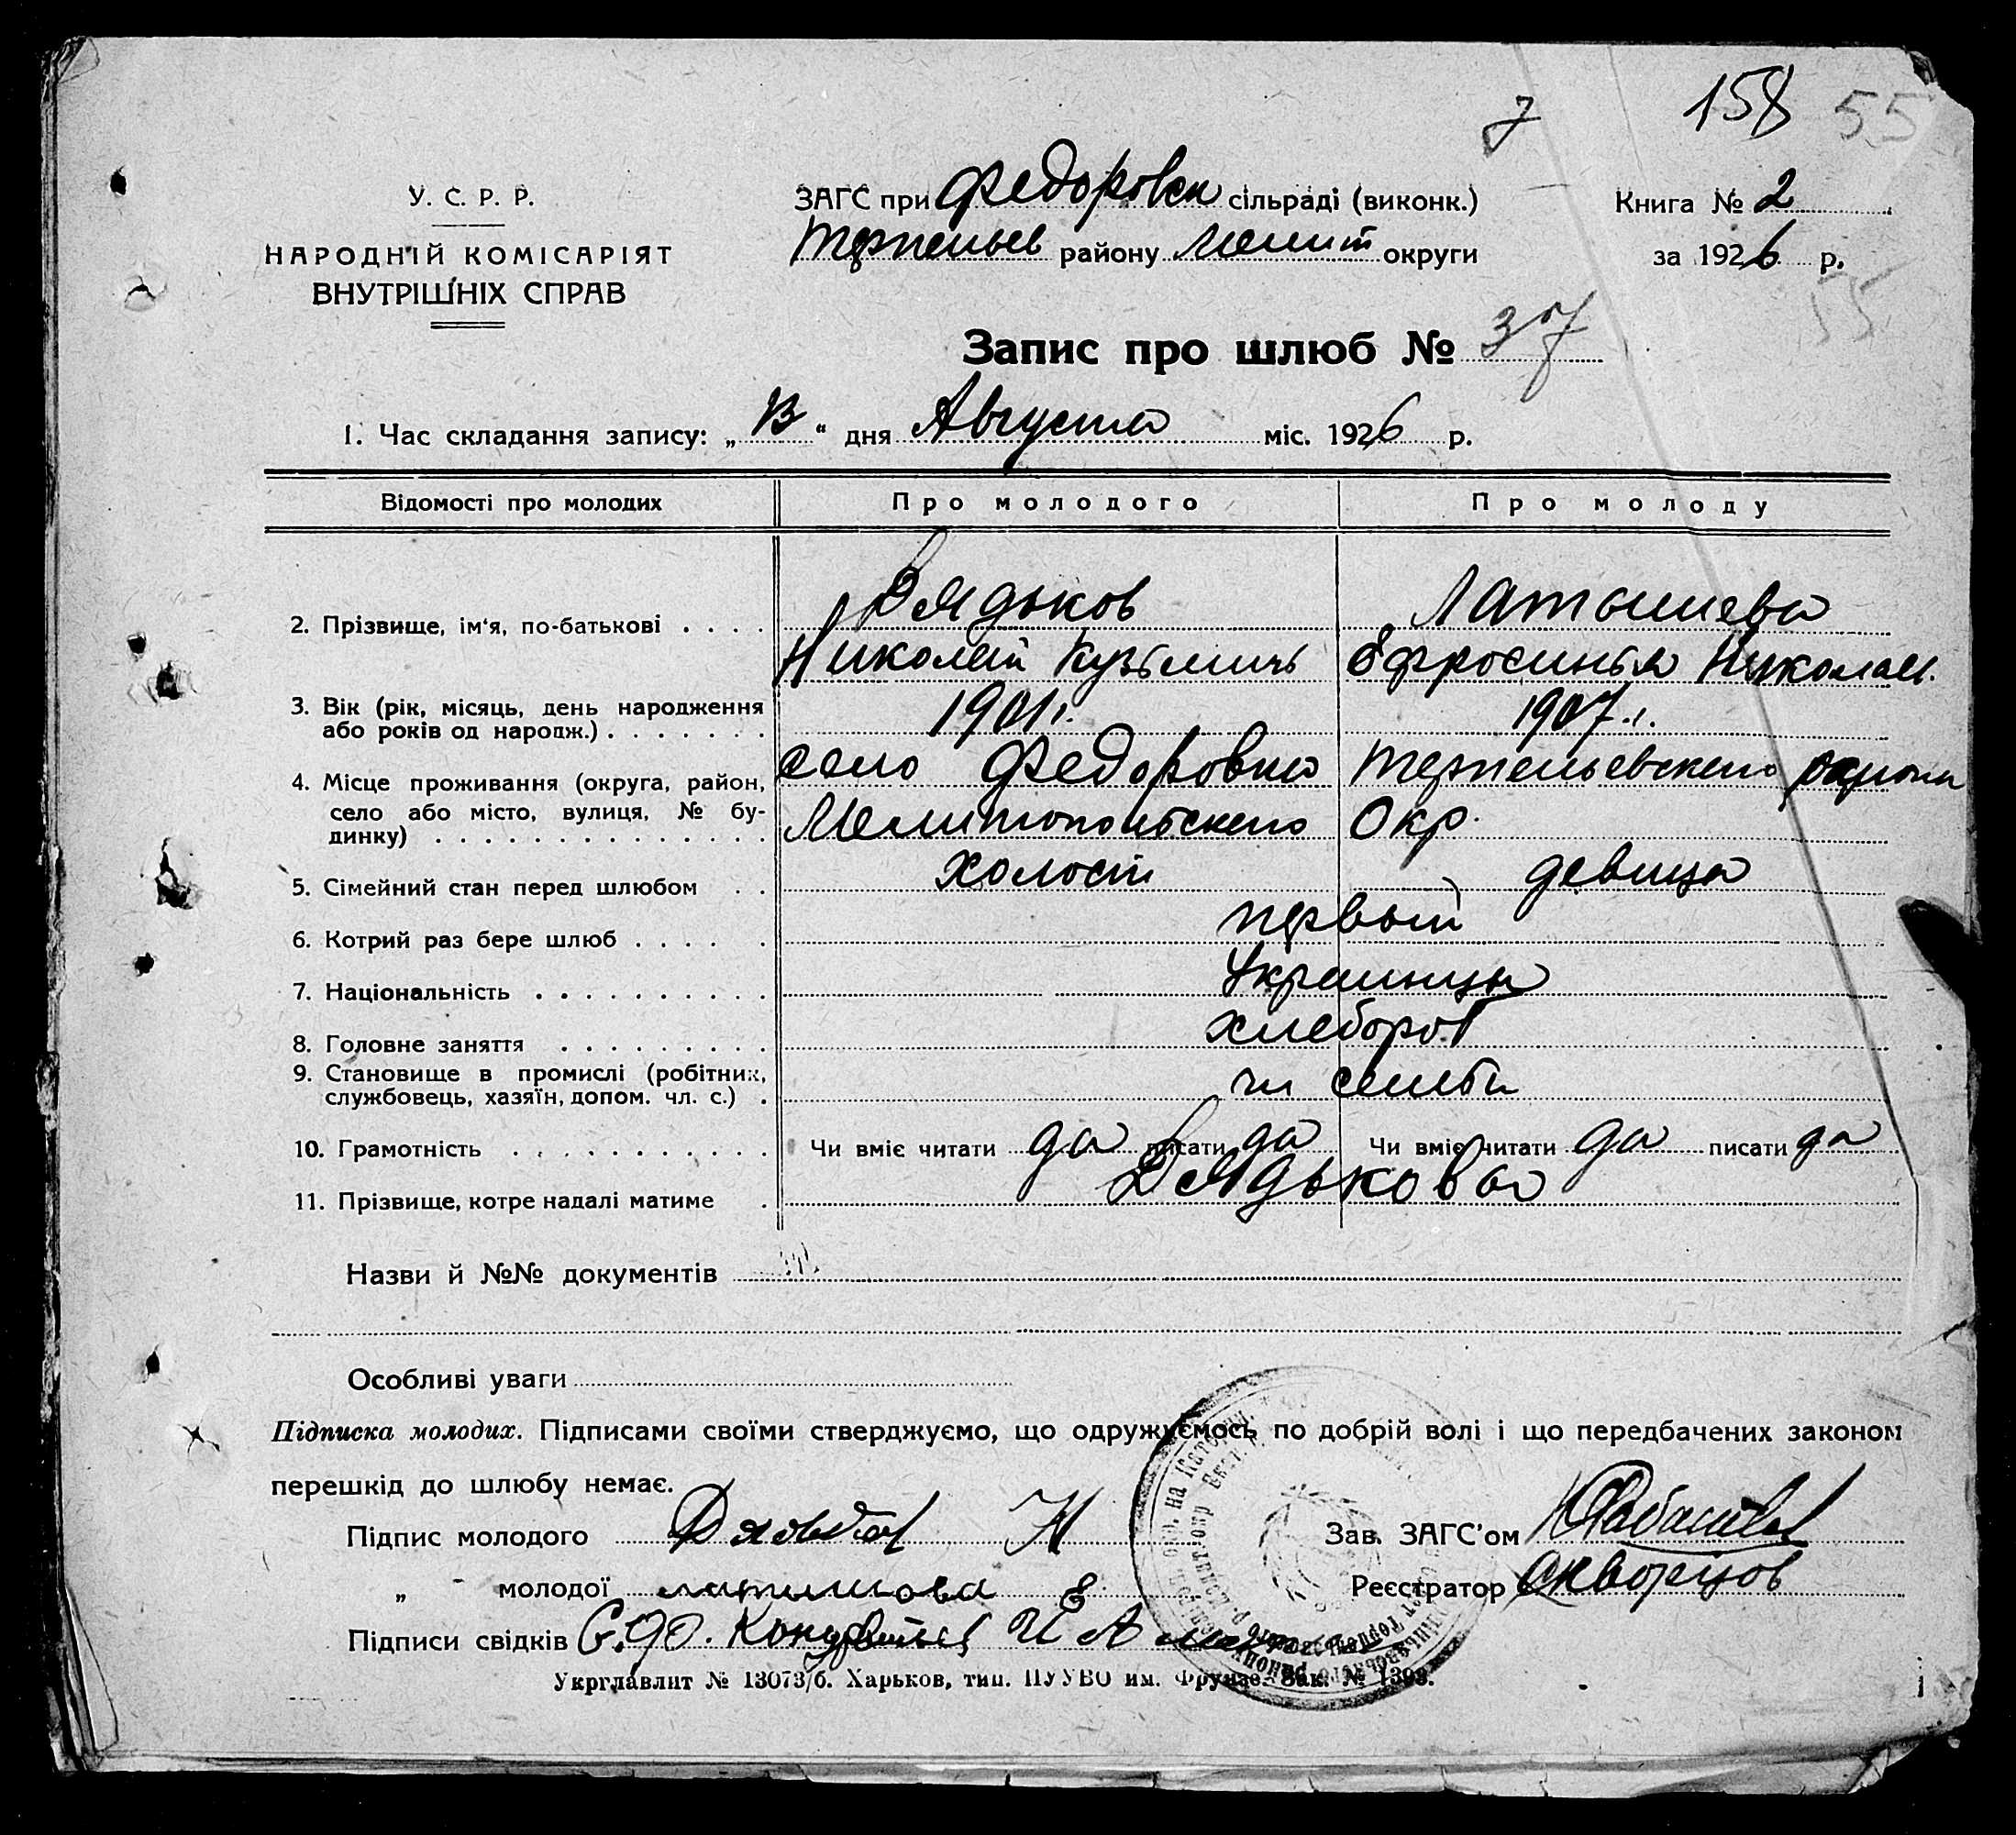 7 158 55
У. С. Р. Р.
НАРОДНІЙ КОМІСАРІЯТ
ВНУТРІШНІХ СПРАВ
ЗАГС при Федоровск сільраді (виконк.)
Терпеньев району Мелит округи
Книга № 2
за 1926 р.
55
Запис про шлюб № 37
1. Час складання запису: „13“ дня Августа міс. 1926 р.
Відомості про молодих Про молодого Про молоду
2. Прізвище, ім'я, по-батькові . . . . Дядьков Латышева
Николай Кузьмичь Ефросинья Николаев.
3. Вік (рік, місяць, день народження
або років од народж.) . . . . . . . 1901г. 1907.г.
4. Місце проживання (округа, район, село Федоровка Терпеньевского района
село або місто, вулиця, № бу-
динку) . . . . . . . . . . . . . . Мелитопольского Окр.
5. Сімейний стан перед шлюбом . . холост девица
6. Котрий раз бере шлюб . . . . . первый
7. Національність . . . . . . . . . . Украинцы
8. Головне заняття . . . . . . . . . хлебороб
9. Становище в промислі (робітник,
службовець, хазяїн, допом. чл. с.) . чл семьи
10. Грамотність . . . . . . . . . . . Чи вміє читати да писати да Чи вміє читати да писати да
11. Прізвище, котре надалі матиме . Дядьковы
Назви й №№ документів
Особливі уваги
Підписка молодих. Підписами своїми стверджуємо, що одружуємось по добрій волі і що передбачених законом
перешкід до шлюбу немає.
Підпис молодого Н
Зав. ЗАГС'ом
„ - молодої латишова Е
Реєстратор Скворцов
Підписи свідків
Укрглавлит № 13073/б. Харьков, тип. ПУУВО им. Фрунзе. Зак. № 1393.